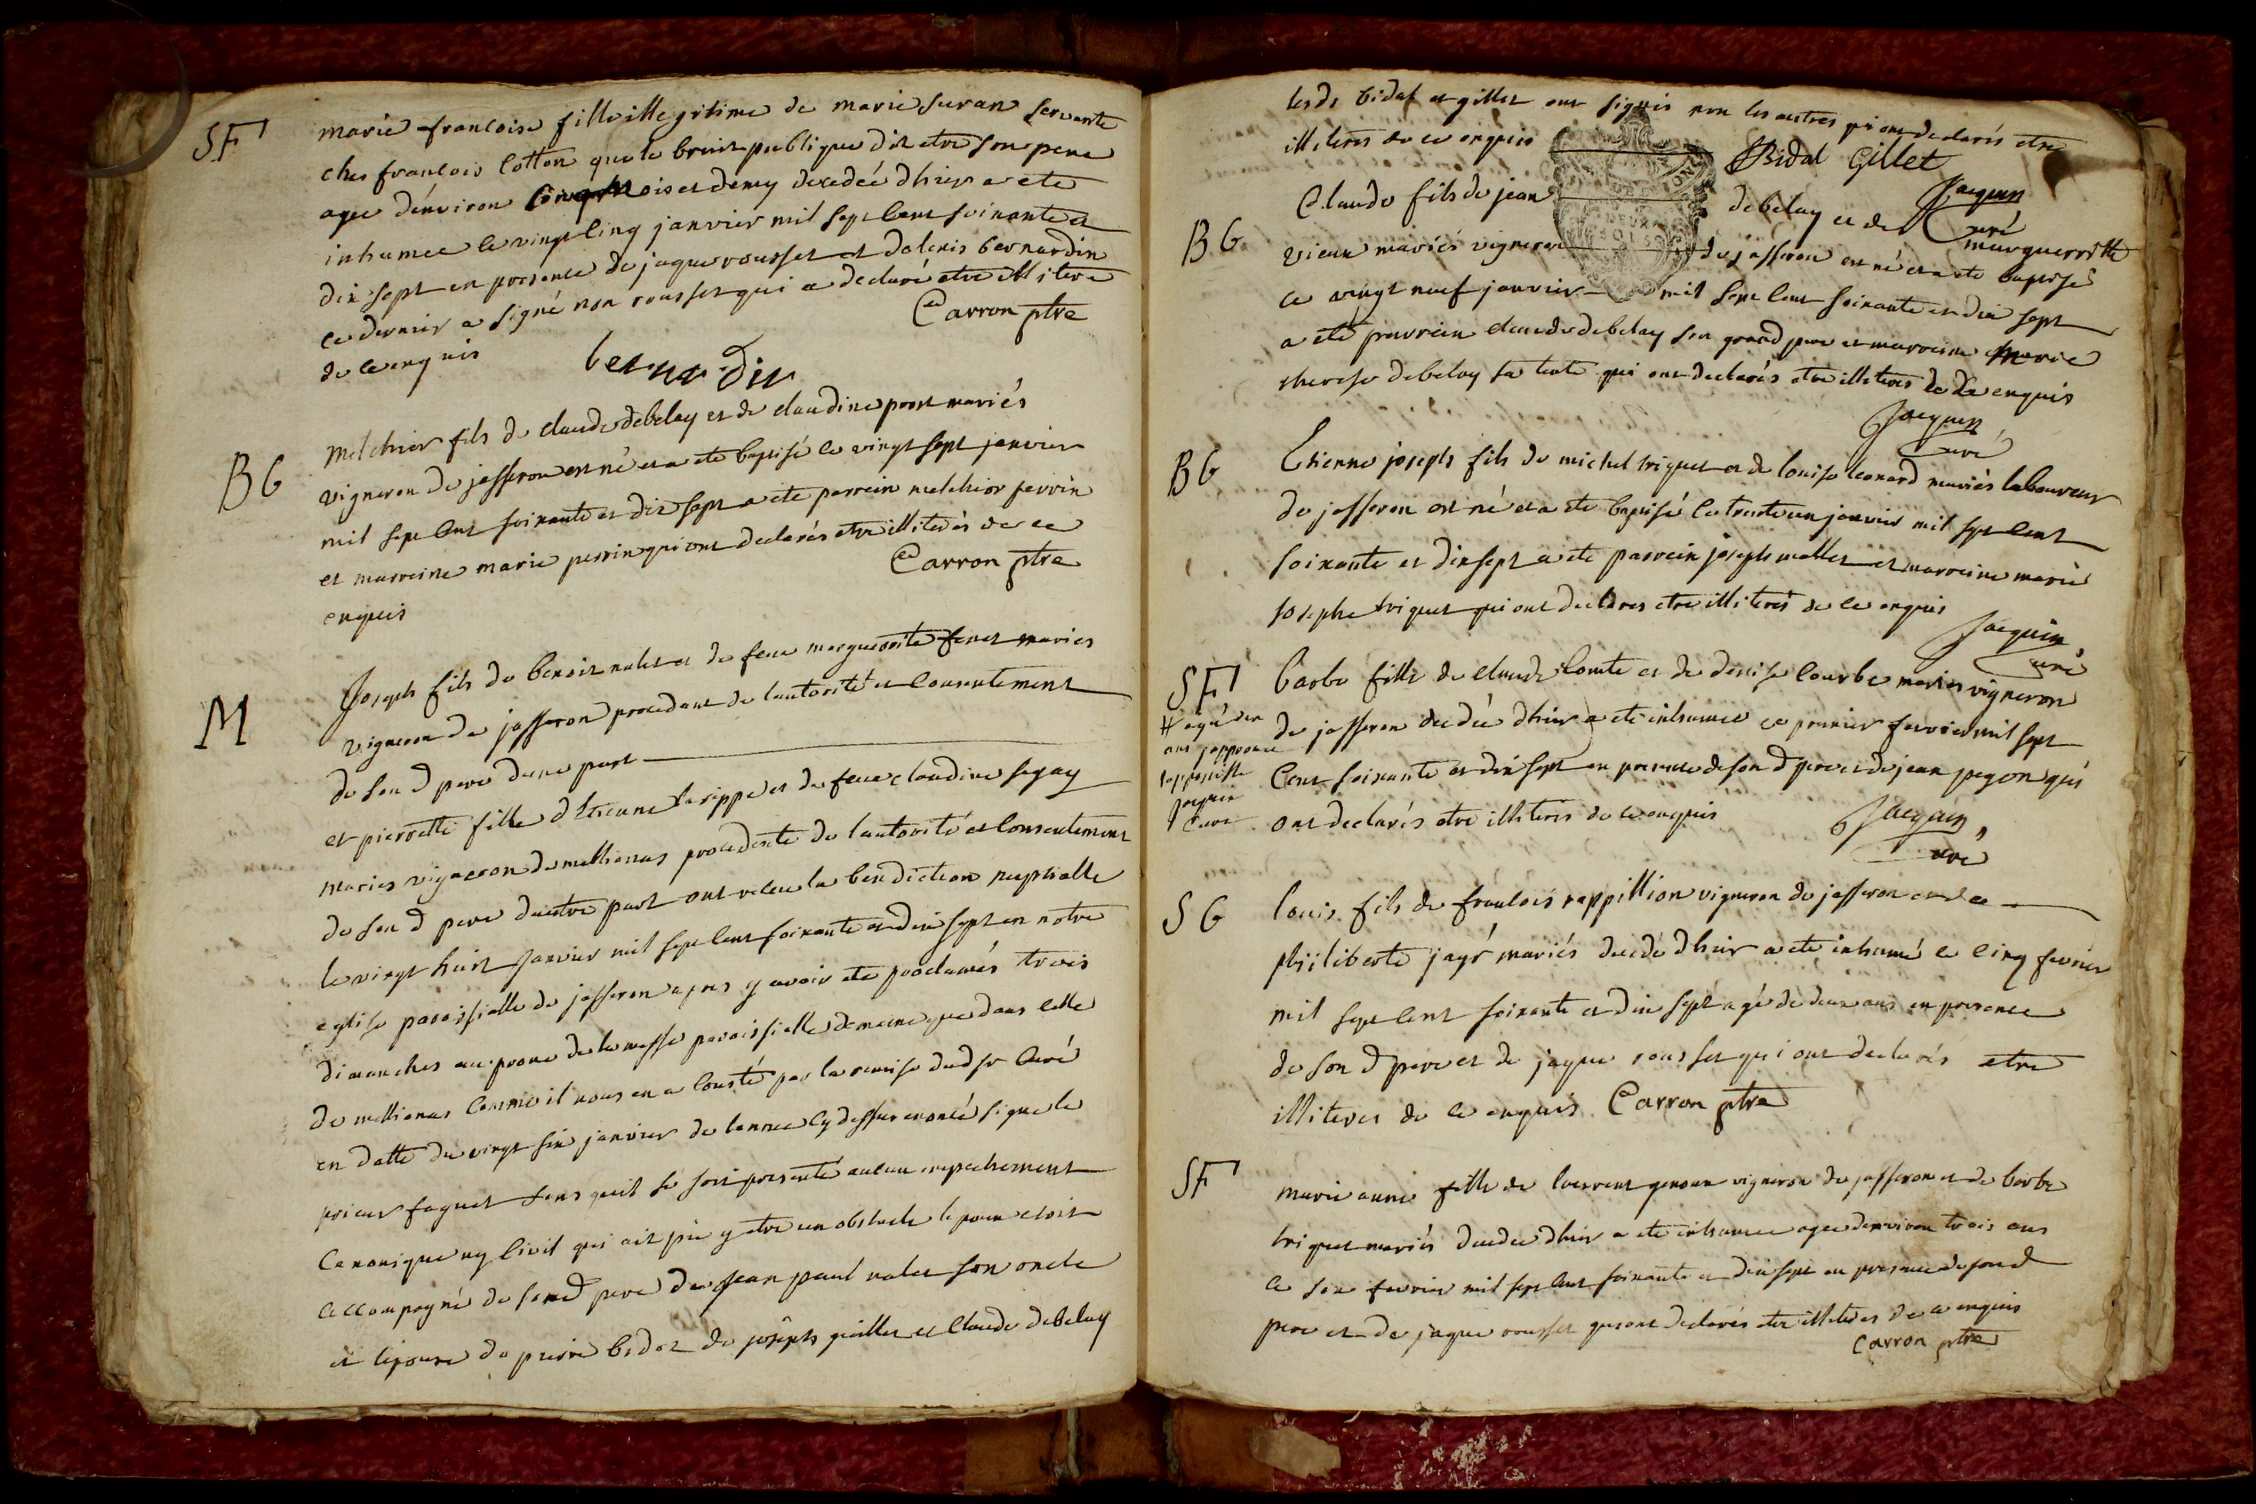 SF
marie francoise fille illegitime de marie suran servante
ches francois Cotton que le bruit publique dit etre son pere
agee denviron mois et demy decedée dhier a ete
inhumee le vingt cinq janvier mil sept cent soixante et
dix sept en presence de jaque rousset et dalexis bernardin
ce dernier a signé non rousset qui a declaré etre illitere
de ce enquis
Carron ptre
bernardin
BG
melchior fils de claude debelay et de claudine pont mariés
vigneron de jasseron est né et a ete baptisé le vingt sept janvier
mil sept cent soixante et dix sept a ete parrein melchior perrin
et marreine marie perrin qui ont declarés etre illiterés de ce
enquis
Carron ptre
M
Joseph fils de benoit nalet et de feue marguerite feret maries
vigneron de jasseron procedant de lautorité et consentement
de son d pere dune part
et pierrette fille dEtienne larippe et de feue claudine segay
maries vigneron de meillonas procedente de lautorité et consentement
de son d pere dautre part ont receu la benediction nuptialle
le vingt huit janvier mil sept cent soixante et dix sept en notre
eglise paroissialle de jasseron apres y avoir ete proclamés trois
dimanches au prone de la messe paroissialle de meme que dans celle
de meillonas comme il nous en a consté par la remise dud sr curé
en datte du vingt six janvier de lannee cy dessus enoncé signé le
prieur faguet sans quil se soit presenté aucun empechement
canonique ny civil qui ait pu y etre un obstacle lepoux etoit
accompagné de son d pere de jean paul nalet son oncle
et lepouse de pierre bidal de joseph gillet et Claude debelay
lesds bidal et gillet ont signés non les autres qui ont declarés etre
illiteres de ce enquis
Bidal Gillet
Jacquin
curé
BG
Claude fils de jean debelay et de marguerritte
vieux mariés vigneron de jasseron est né et a ete baptisé
ce vingt neuf janvier mil sept cent soixante et dix sept
a ete parrein claude debelay son grand pere et marreine marie
therese debelay sa tente qui ont declarés etre illiteres de ce enquis
Jacquin
curé
BG
Etienne joseph fils de michel triquet et de louise leonard mariés laboureur
de jasseron est né et a ete baptisé le trente un janvier mil sept cent
soixante et dix sept a ete parrein joseph mallet et marreine marie
josephe triquet qui ont declares etre illiteres de ce enquis
Jacquin
curé
SF
barbe fille de claude comte et de denise courbe maries vigneron
de jasseron decedée dhier a ete inhumee ce premier fevrier mil sept
cent soixante et dix sept en presence de son d pere et de jean pegon qui
ont declarés etre illiteres de ce enquis
# agé dix
ans japprouve
lappostille
Jacquin
curé
Jacquin
curé
SG
louis fils de francois rappillion vigneron de jasseron et de
philiberte jayr mariés decedé dhier a ete inhumé ce cinq fevrier
mil sept cent soixante et dix sept agé de deux ans en presence
de son d pere et de jaque rousset qui ont declarés etre
illiteres de ce enquis Carron ptre
SF
marie anne fille de laurent genoux vigneron de jasseron et de barbe
triquet mariés decedee dhier a ete inhumee agee denviron trois ans
ce six fevrier mil sept cent soixante et dix sept en presence de son d
pere et de jaque rousset qui ont declarés etre illiteres de ce enquis
Carron ptre